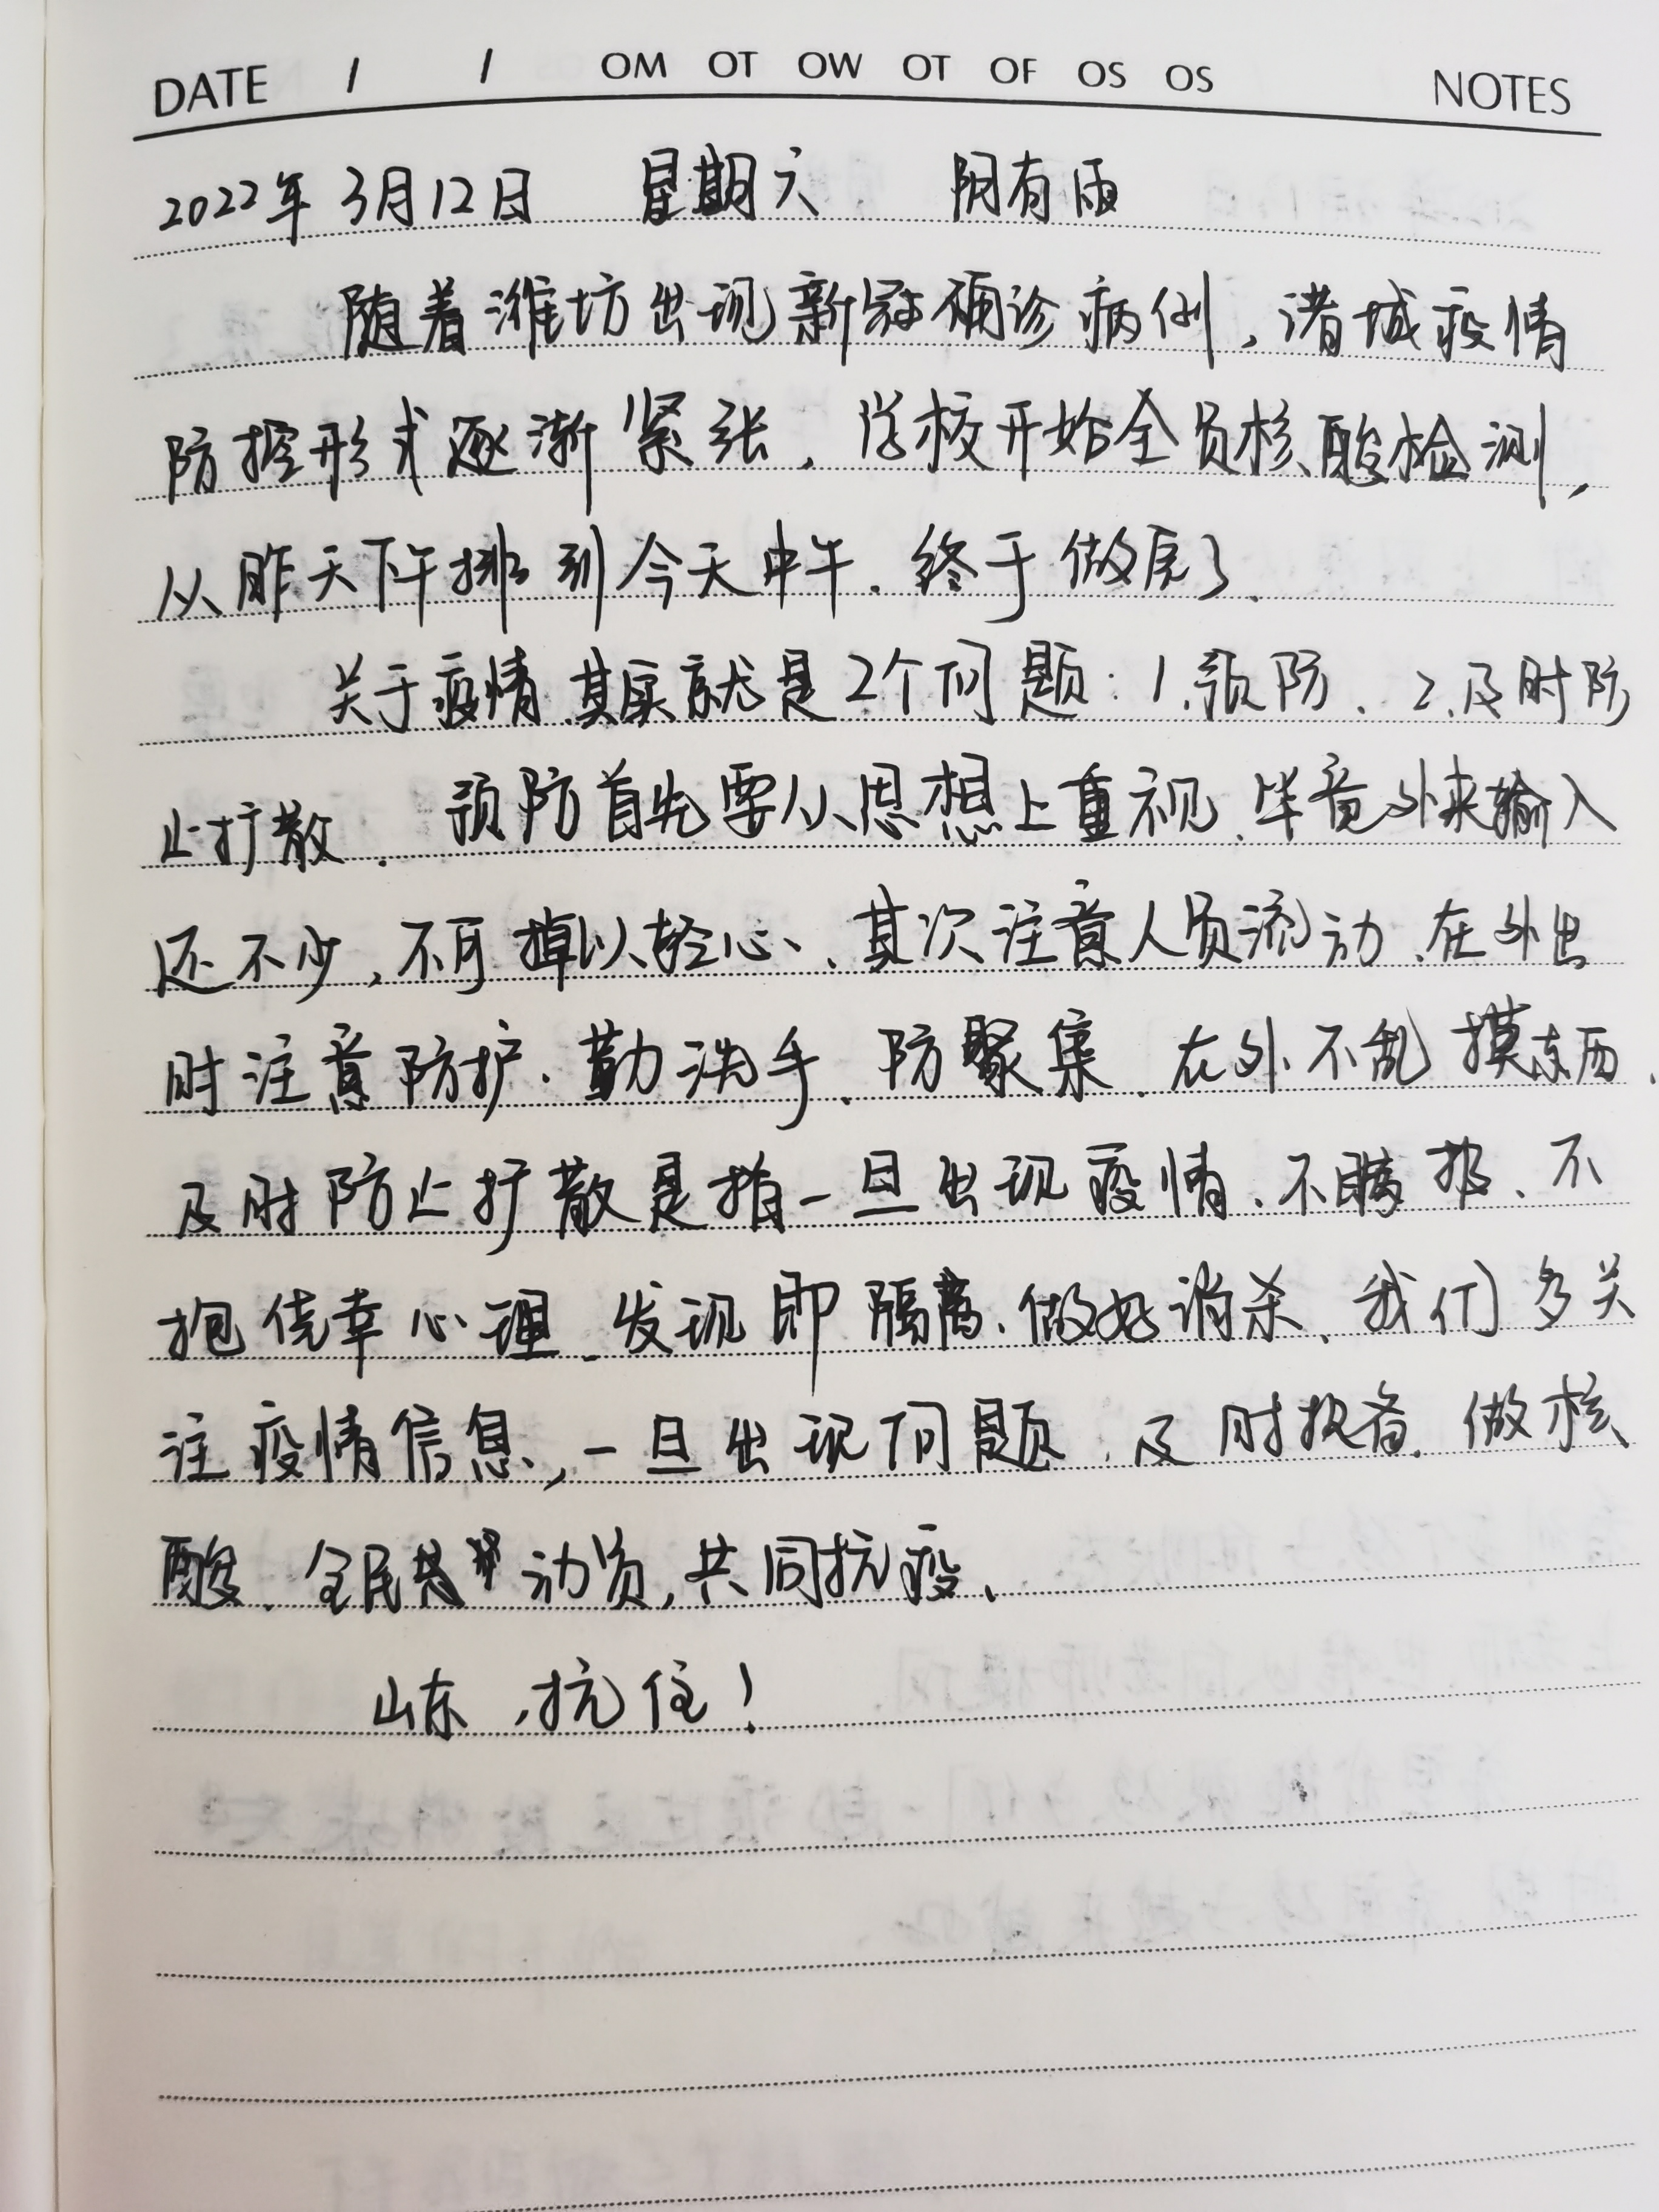 DATE / / OM OT OW OT OF OS OS NOTES
2022年3月12日 星期六 阴有雨
随着潍坊出现新冠确诊病例,诸城疫情
防控形式逐渐紧张,学校开始全员核酸检测,
从昨天下午排到今天中午,终于做完了.
关于疫情,其实就是2个问题:1.预防、2.及时防
止扩散. 预防首先要从思想上重视,毕竟外来输入
还不少,不可掉以轻心、其次注意人员流动,在外出
时注意防护.勤洗手、防聚集、在外不乱摸东西.
及时防止扩散是指一旦出现疫情、不瞒报、不
抱侥幸心理、发现即隔离、做好消杀、我们多关
注疫情信息,一旦出现问题,及时报备.做核
酸、全民动员,共同抗疫、
山东,抗住!